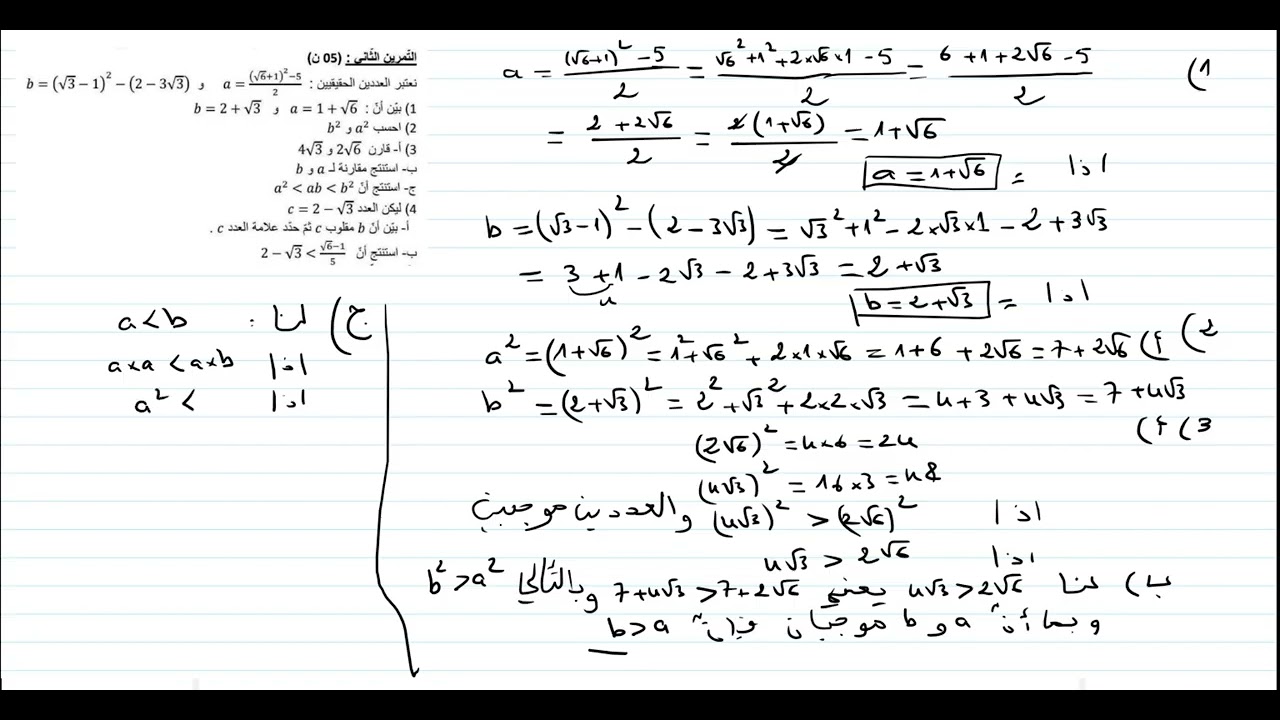 التمرين الثاني : (05 ن)
نعتبر العددين الحقيقيين : a = ((√6+1)² − 5)/2 و b = (√3 − 1)² − (2 − 3√3)
1) بيّن أنّ : a = 1 + √6 و b = 2 + √3
2) احسب a² و b²
3) أ- قارن 2√6 و 4√3
ب- استنتج مقارنة لـ a و b
ج- استنتج أنّ a² < ab < b²
4) ليكن العدد c = 2 − √3
أ- بيّن أنّ b مقلوب c ثمّ حدّد علامة العدد c .
ب- استنتج أنّ 2 − √3 < (√6−1)/5
1) a = ((√6+1)² − 5)/2 = (√6² + 1² + 2×√6×1 − 5)/2 = (6 + 1 + 2√6 − 5)/2
= (2 + 2√6)/2 = 2(1+√6)/2 = 1+√6
اذا = a = 1+√6
b = (√3−1)² − (2 − 3√3) = √3² + 1² − 2×√3×1 − 2 + 3√3
= 3 + 1 − 2√3 − 2 + 3√3 = 2 + √3
4
اذا = b = 2+√3
2) أ) a² = (1+√6)² = 1² + √6² + 2×1×√6 = 1+6 + 2√6 = 7+2√6
b² = (2+√3)² = 2² + √3² + 2×2×√3 = 4+3 + 4√3 = 7+4√3
3) أ)
(2√6)² = 4×6 = 24
(4√3)² = 16×3 = 48
اذا (4√3)² > (2√6)² والعددين موجبين
اذا 4√3 > 2√6
ب) لنا 4√3 > 2√6 يعني 7+4√3 > 7+2√6 وبالتالي b² > a²
وبما أنّ a و b موجبان فإنّ b > a
ج) لنا : a < b
اذا a×a < a×b
اذا a² <